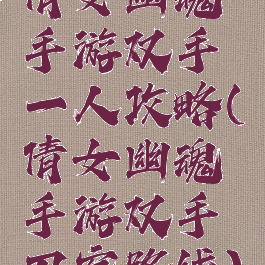 倩女幽魂
手游双手
一人攻略(
倩女幽魂
手游双手